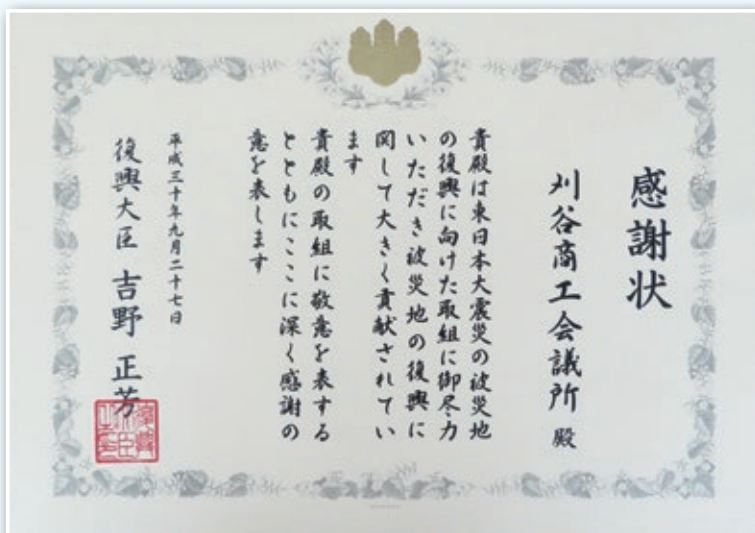 感謝状
刈谷商工会議所 殿
貴殿は東日本大震災の被災地
の復興に向けた取組に御尽力
いただき被災地の復興に
関して大きく貢献されてい
ます
貴殿の取組に敬意を表する
とともにここに深く感謝の
意を表します
平成三十年九月二十七日
復興大臣 吉野 正芳